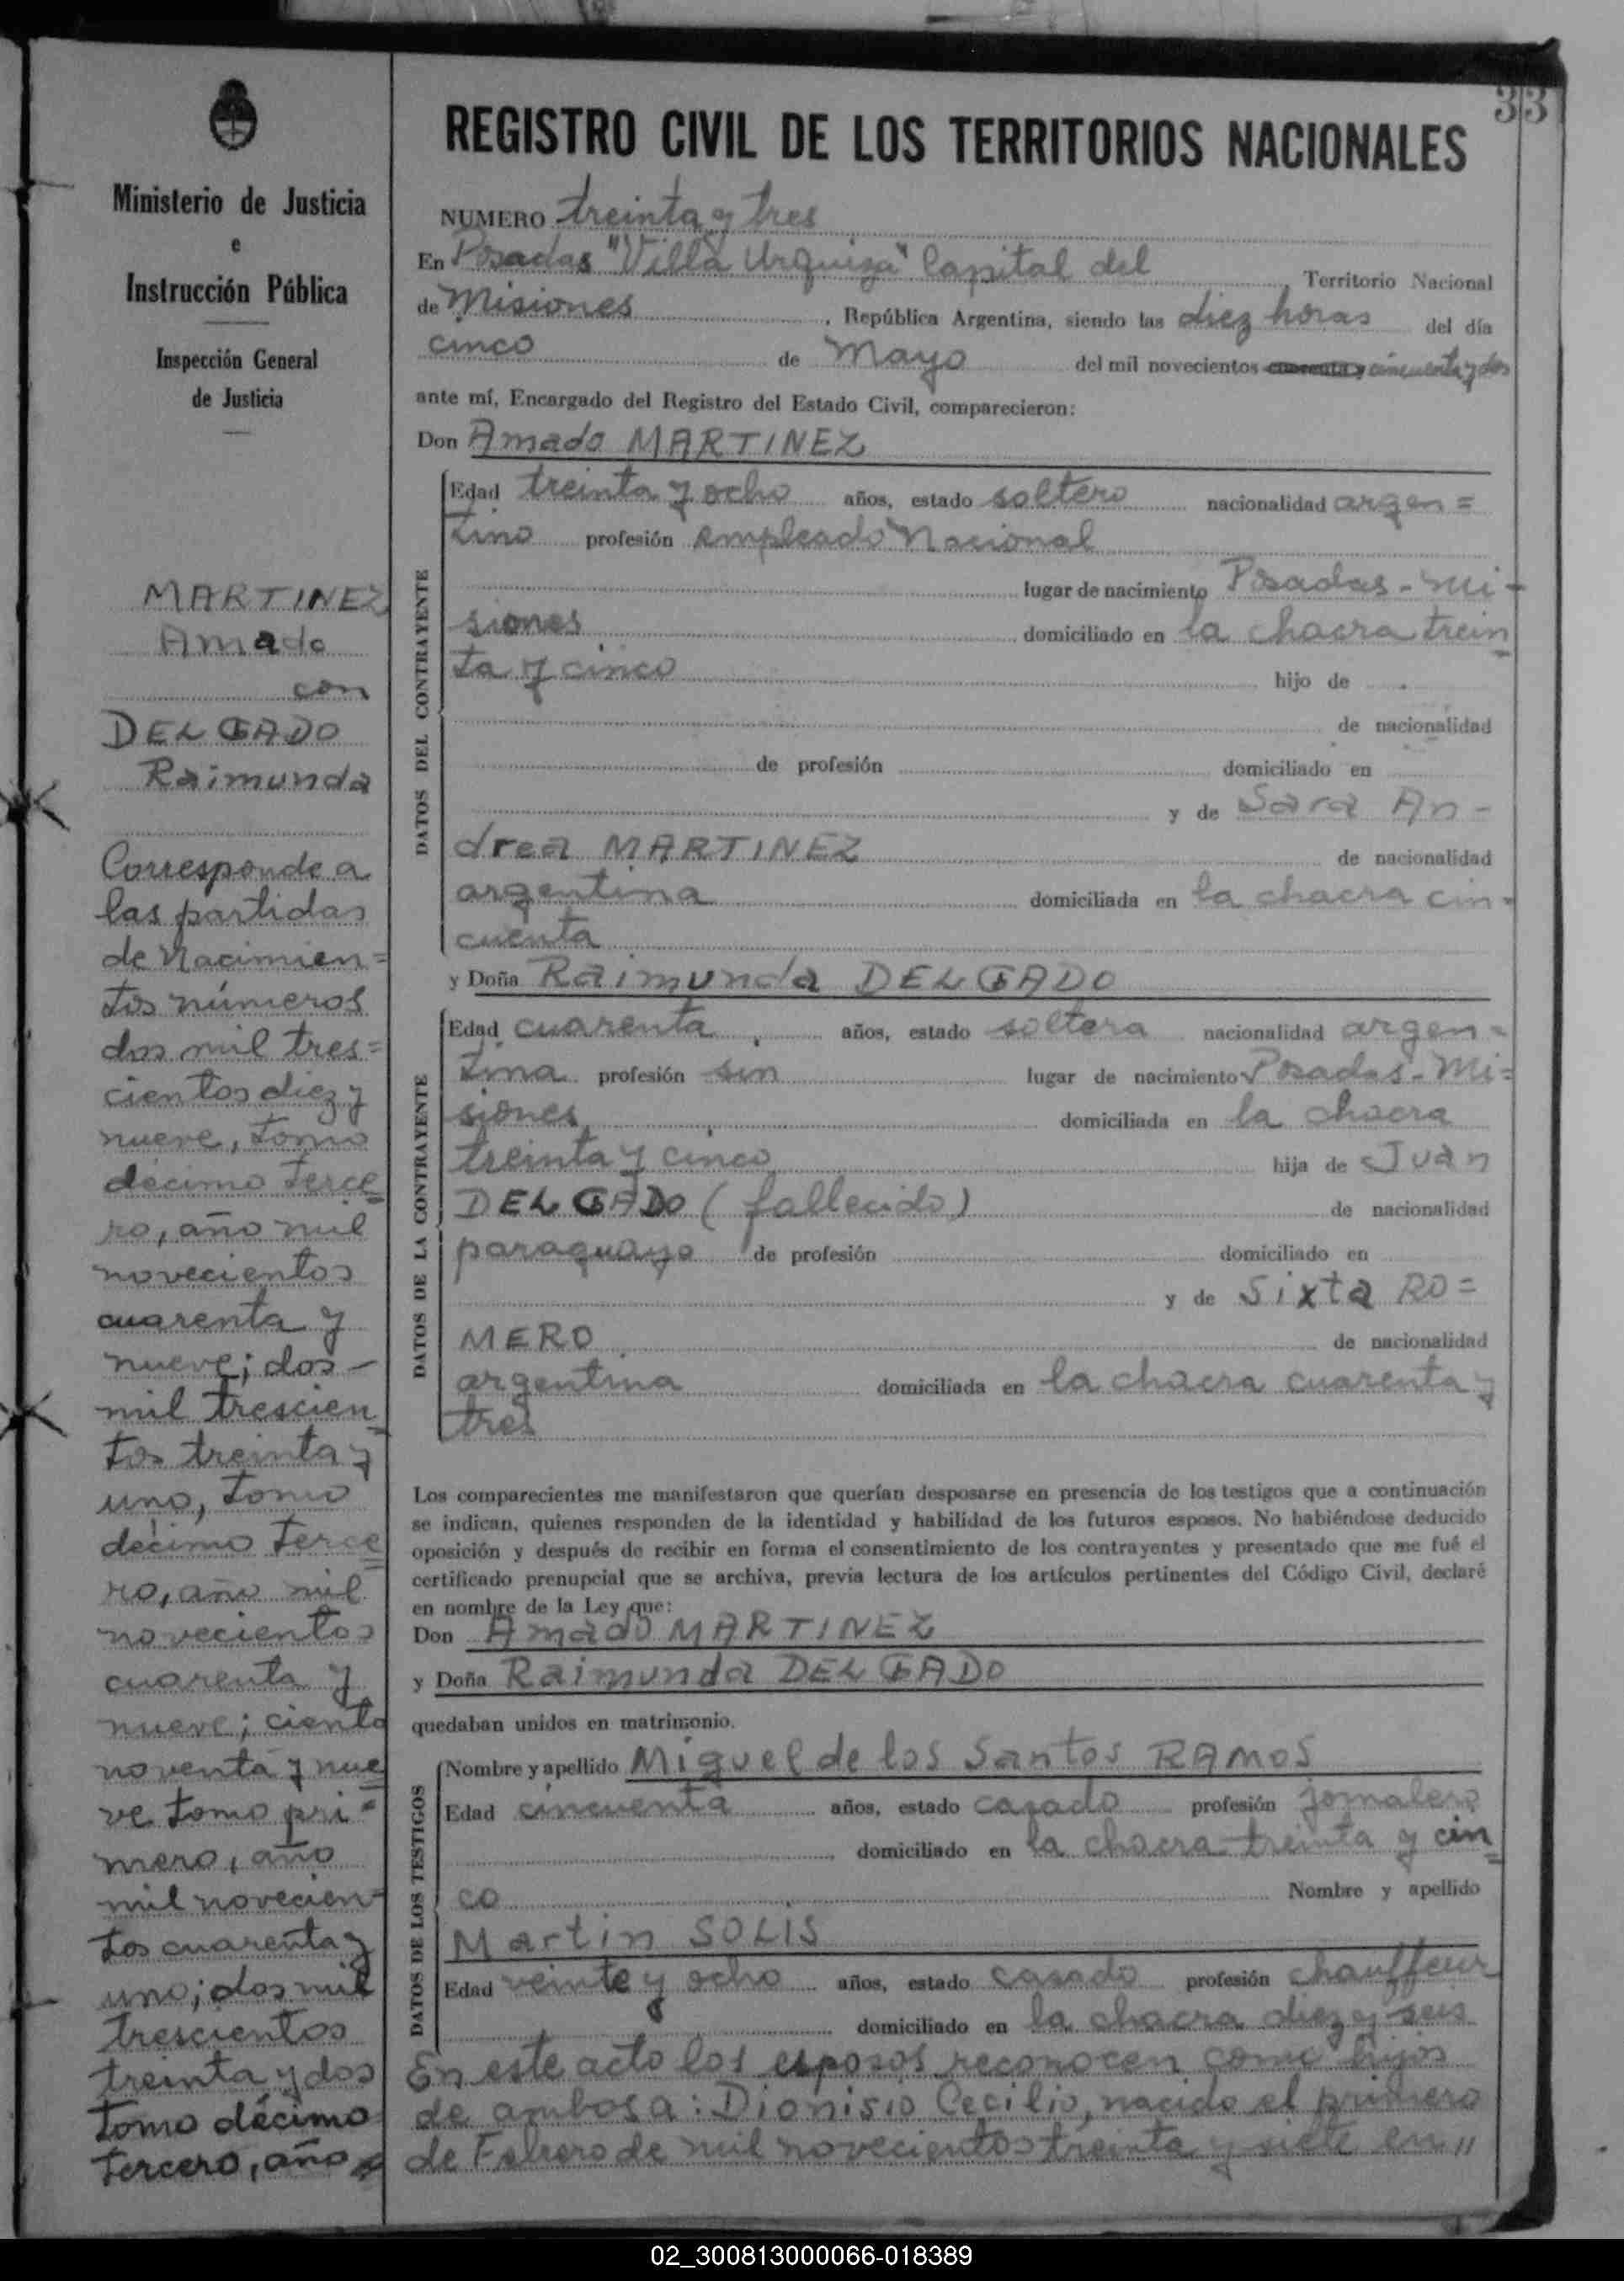 33
Ministerio de Justicia
e
Instrucción Pública
Inspección General
de Justicia
MARTINEZ
Amado
con
DELGADO
Raimunda
Corresponde a
las partidas
de Nacimien=
tos números
dos mil tres=
cientos diez y
nueve, tomo
décimo terce
ro, año mil
novecientos
cuarenta y
nueve; dos-
mil trescien
tos treinta y
uno, tomo
décimo terce
ro, año mil
novecientos
cuarenta y
nueve; ciento
noventa y nue
ve tomo pri=
mero, año
mil novecien=
tos cuarenta y
uno; dos mil
trescientos
treinta y dos
tomo décimo
tercero, año
REGISTRO CIVIL DE LOS TERRITORIOS NACIONALES
NUMERO treinta y tres
En Posadas "Villa Urquiza" Capital del Territorio Nacional
de Misiones, República Argentina, siendo las diez horas del día
cinco de Mayo del mil novecientos cincuenta y dos
ante mí, Encargado del Registro del Estado Civil, comparecieron:
Don Amado MARTINEZ
DATOS DEL CONTRAYENTE
Edad treinta y ocho años, estado soltero nacionalidad argen=
tino profesión empleado Nacional
lugar de nacimiento Posadas-Mi-
siones domiciliado en la chacra trein
ta y cinco hijo de
de nacionalidad
de profesión domiciliado en
y de Sara An-
drea MARTINEZ de nacionalidad
argentina domiciliada en la chacra cin-
cuenta
y Doña Raimunda DELGADO
DATOS DE LA CONTRAYENTE
Edad cuarenta años, estado soltera nacionalidad argen-
tina profesión sin lugar de nacimiento Posadas-Mi=
siones domiciliada en la chacra
treinta y cinco hija de Juan
DELGADO (fallecido) de nacionalidad
paraguayo de profesión domiciliado en
y de Sixta RO=
MERO de nacionalidad
argentina domiciliada en la chacra cuarenta y
tres
Los comparecientes me manifestaron que querían desposarse en presencia de los testigos que a continuación
se indican, quienes responden de la identidad y habilidad de los futuros esposos. No habiéndose deducido
oposición y después de recibir en forma el consentimiento de los contrayentes y presentado que me fué el
certificado prenupcial que se archiva, previa lectura de los artículos pertinentes del Código Civil, declaré
en nombre de la Ley que:
Don Amado MARTINEZ
y Doña Raimunda DELGADO
quedaban unidos en matrimonio.
DATOS DE LOS TESTIGOS
Nombre y apellido Miguel de los Santos RAMOS
Edad cincuenta años, estado casado profesión jornalero
domiciliado en la chacra treinta y cin
co Nombre y apellido
Martin SOLIS
Edad veinte y ocho años, estado casado profesión chauffeur
domiciliado en la chacra diez y seis
En este acto los esposos reconocen como hijos
de ambos a: Dionisio Cecilio, nacido el primero
de Febrero de mil novecientos treinta y siete en "
02_300813000066-018389